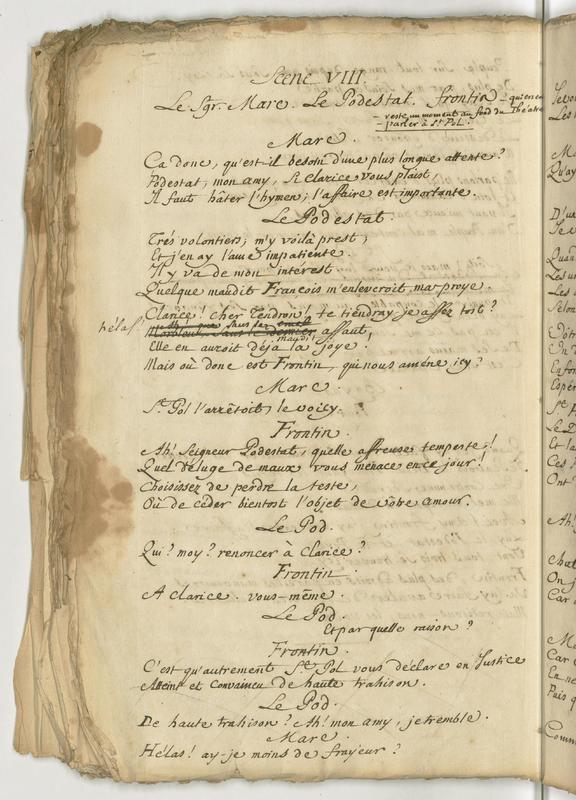 Scene VIII.
Le Sgr. Marc. Le Podestat. frontin – qui
– reste un moment au fond du Théatre
– parler à St. Pol.
Marc.
Ca donc, qu'est-il besoin d'une plus longue attente?
Podestat, mon amy, si Clarice vous plaist,
Il faut hâter l'hymen; l'affaire est importante.
Le Podestat.
Trés volontiers; m'y voilà prest,
Et j'en ay l'ame impatiente.
Il y va de mon intérest
Quelque maudit François m'enleveroit ma proye.
Clarice! cher Tendron! te tiendray-je assez tost?
hélas! sans le dernier maudit assaut,
Elle en auroit déja la joye.
Mais où donc est Frontin, qui nous améne icy?
Marc.
St. Pol l'arrêtoit; le voicy.
Frontin.
Ah! Seigneur Podestat, quelle affreuse tempeste!
Quel déluge de maux vous menace en ce jour!
Choisissez de perdre la teste,
Où de céder bientost l'objet de votre amour.
Le Pod.
Qui? moy? renoncer à Clarice?
Frontin.
A Clarice. vous-même.
Le Pod.
Et par quelle raison?
Frontin.
C'est qu'autrement St. Pol vous déclare en Justice
Atteint et convaincu de haute trahison.
Le Pod.
De haute trahison? Ah! mon amy, je tremble.
Marc.
Hélas! ay-je moins de frayeur?